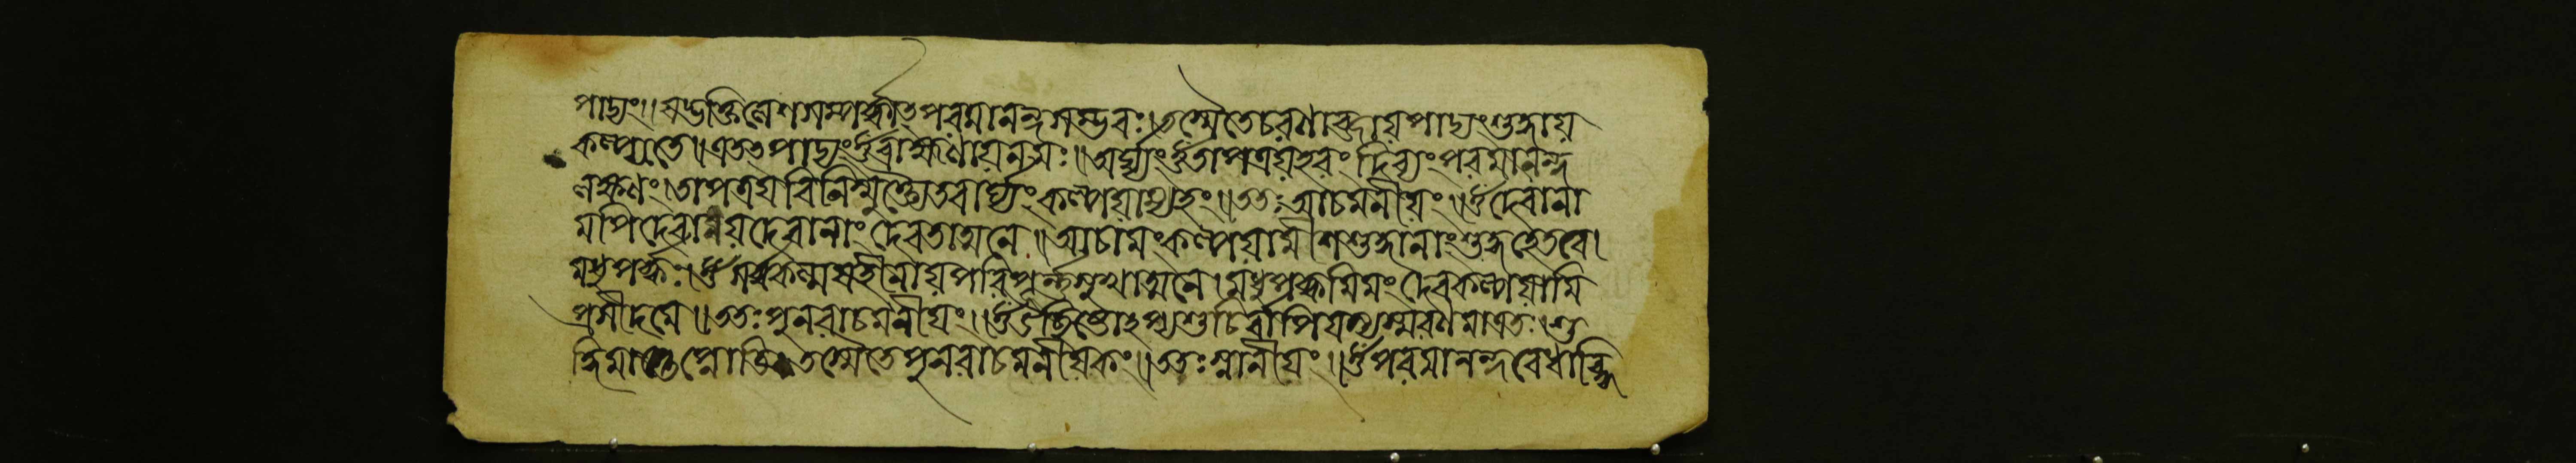 পাদ্যং॥যদ্ভক্তিলেশসম্পর্কাৎপরমানন্দসম্ভবঃ।তস্মৈতেচরণাব্জায়পাদ্যংশুদ্ধায়
কল্প্যতে॥এততপাদ্যংওঁব্রাহ্মণায়নমঃ॥অর্ঘ্যংওঁতাপত্রয়হরং দিব্যংপরমানন্দ
লক্ষণং।তাপত্রয়বিনির্ম্মুক্ত্যৈতবার্ঘ্যংকল্পয়াম্যহং॥ততঃআচমনীয়ং॥ওঁদেবানা
মপিদেবায়দেবানাং দেবতাত্মনে॥আচামংকল্পয়ামীশশুদ্ধানাংশুদ্ধহেতবে।
মধুপর্কঃ॥ওঁসর্বকল্মষহীনায়পরিপূর্ন্নসুখাত্মনে।মধুপর্কমিমং দেবকল্পয়ামি
প্রসীদমে॥ততঃপুনরাচমনীয়ং॥ওঁউচ্ছিষ্টোঽপ্যশুচির্বাপিযস্যস্মরণমাত্রতঃ।শু
দ্ধিমাপ্নোতি তস্মৈতেপুনরাচমনীয়কং॥ততঃস্নানীয়ং॥ওঁপরমানন্দবোধাব্ধি